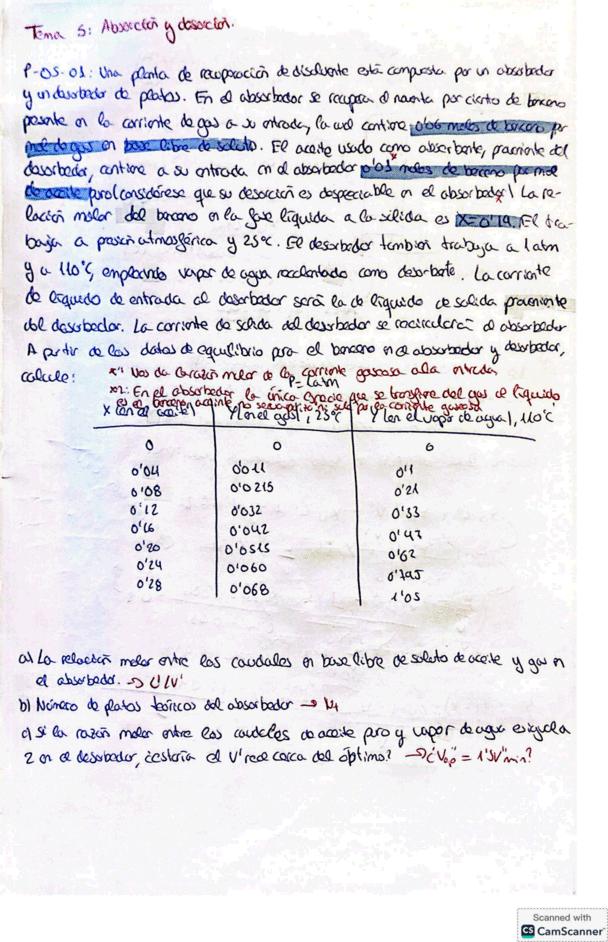 Tema 5: Absorción y desorción.
P-05-01: Una planta de recuperación de disolvente está compuesta por un absorbedor
y un desorbedor de platos. En el absorbedor se recupera el noventa por ciento de benceno
presente en la corriente de gas a su entrada, la cual contiene 0'06 moles de benceno por
mol de gas en base libre de soluto. El aceite usado como absorbente, procedente del
desorbedor, contiene a su entrada en el absorbedor 0'01 moles de benceno por mol
de aceite puro (considérese que su desorción es despreciable en el absorbedor). La re-
lación molar del benceno en la fase líquida a la salida es X=0'19. El tra-
baja a presión atmosférica y 25ºC. El desorbedor tambien trabaja a 1atm
y a 110ºC, empleando vapor de agua recalentado como desorbente. La corriente
de líquido de entrada al desorbedor será la de líquido de salida procedente
del desorbedor. La corriente de salida del desorbedor se recirculará al absorbedor
A partir de los datos de equilibrio para el benceno en el absorbedor y desorbedor,
calcule:
*1 Nos da la razón molar de la corriente gaseosa a la entrada
P=1atm
*2: En el absorbedor la única especie que se transfiere del gas al líquido
es el benceno
X (en el aceite) Y (en el gas), 25ºC Y (en el vapor de agua), 110ºC
0 0 0
0'04 0'011 0'1
0'08 0'0215 0'21
0'12 0'032 0'33
0'16 0'042 0'47
0'20 0'0515 0'62
0'24 0'060 0'795
0'28 0'068 1'05
a) La relación molar entre los caudales en base libre de soluto de aceite y gas en
el absorbedor. → L'/V'
b) Número de platos teóricos del absorbedor →
c) Si la razón molar entre los caudales de aceite puro y vapor de agua es igual a
2 en el desorbedor, ¿estaría el V' real cerca del óptimo? → ¿V"op = 1'5V"min?
Scanned with
CS CamScanner